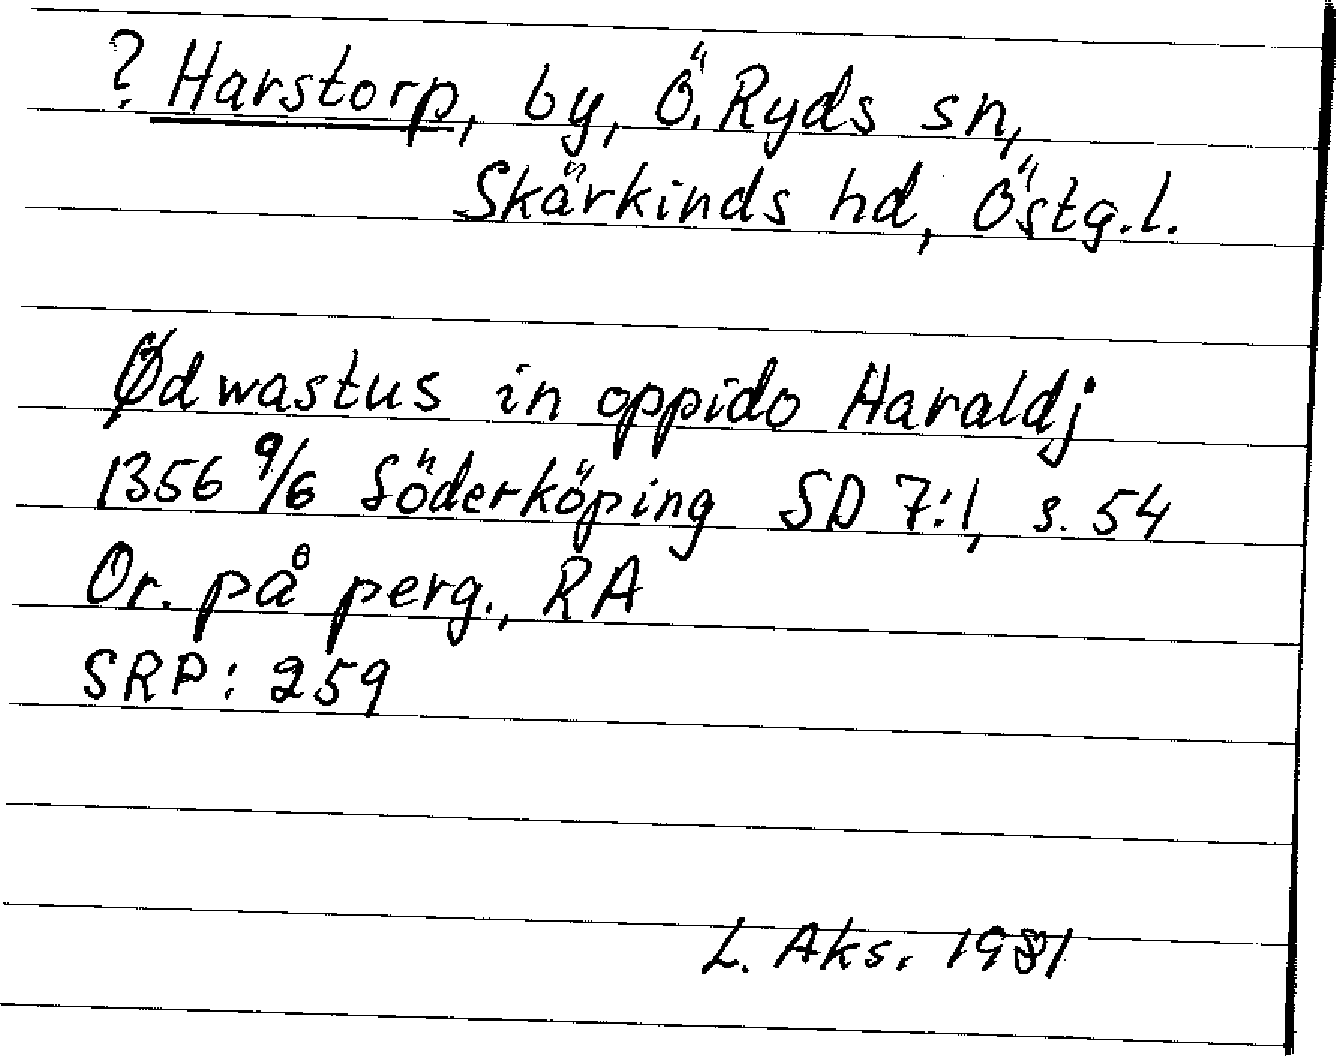 ? Harstorp, by, Ö. Ryds sn,
Skärkinds hd, Östg.l.
Ødwastus in oppido Haraldj
1356 9/6 Söderköping SD 7:1, s. 54
Or. på perg., RA
SRP: 259
L. Aks. 1981